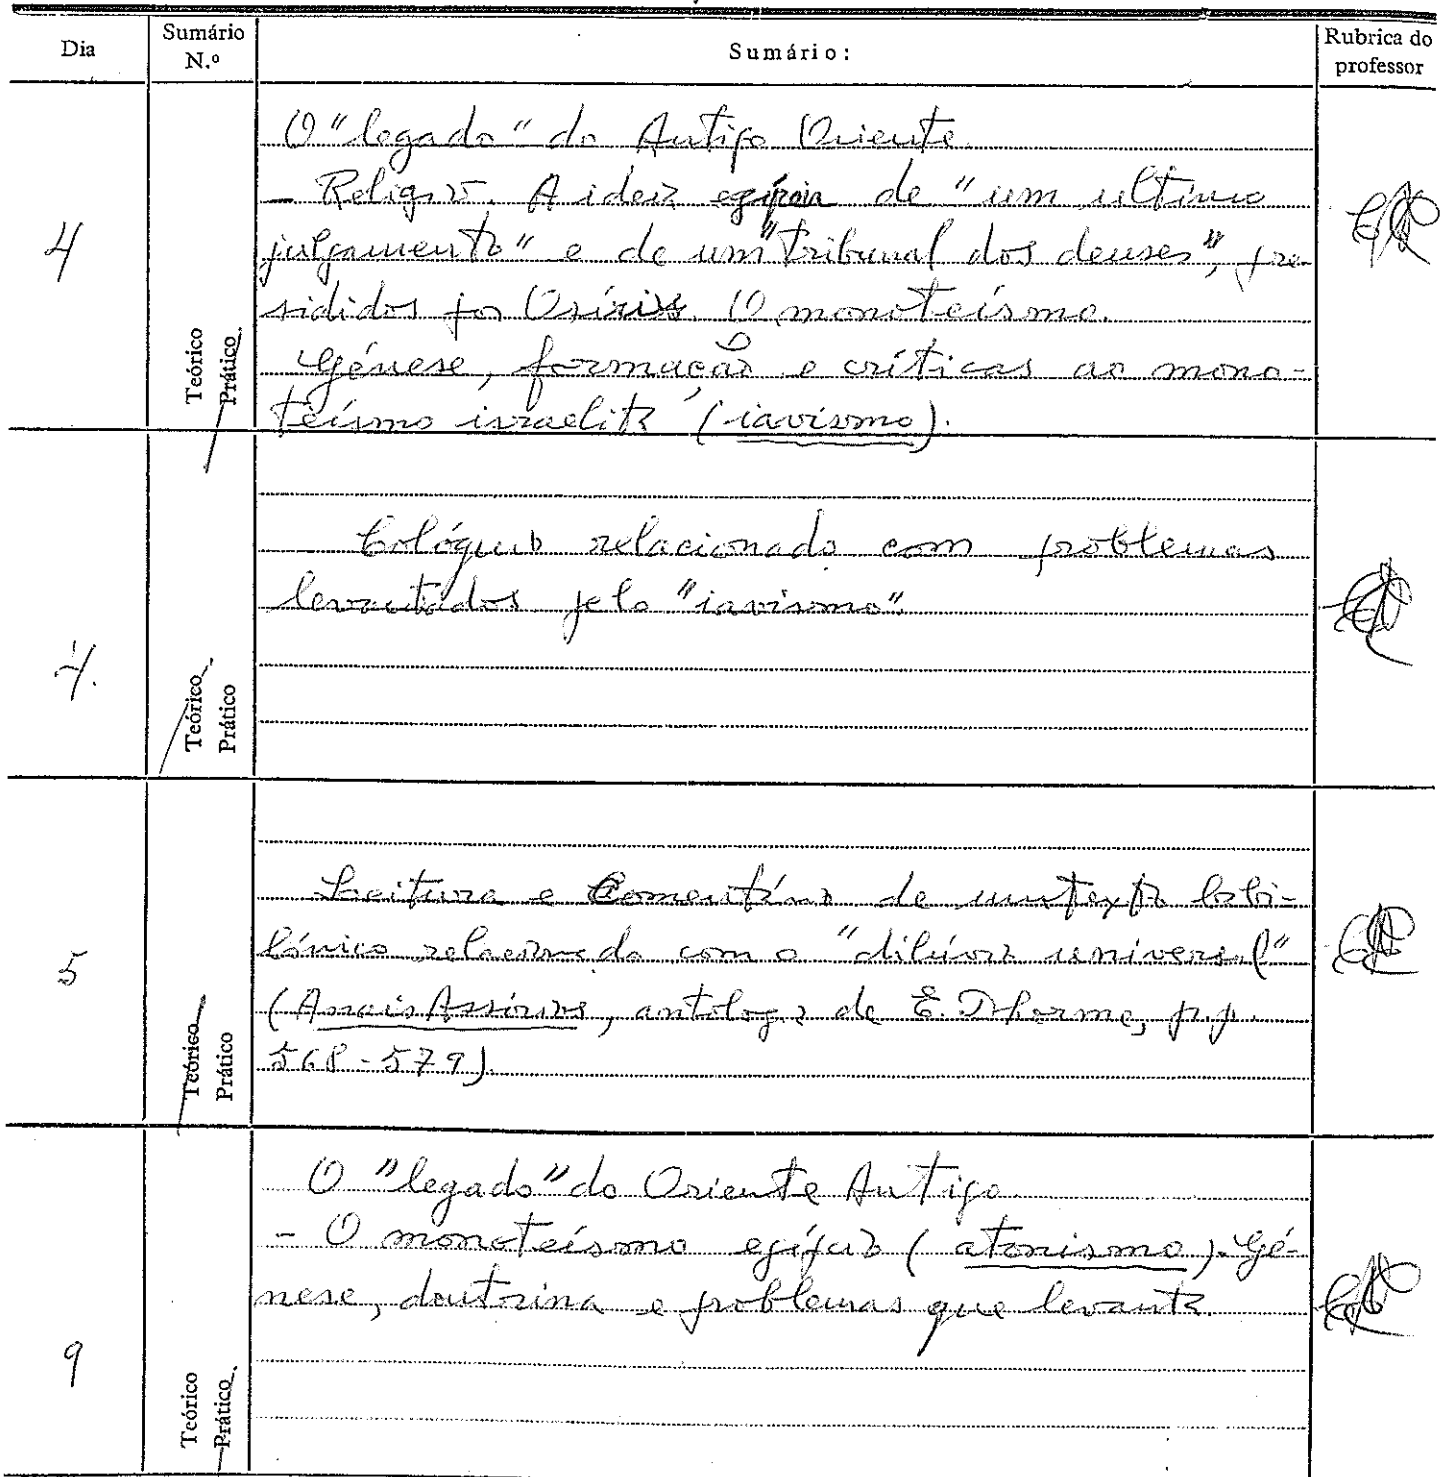 Dia
Sumário N.º
Sumário:
Rubrica do professor
4
Teórico
Prático
O "legado" do Antigo Oriente.
- Religião. A ideia egípcia de "um ultimo
julgamento" e de um "tribunal dos deuses", pre-
sididos por Osíris. O monoteísmo.
Génese, formação e críticas ao mono-
teísmo israelita (iavismo).
4.
Teórico
Prático
Colóquio relacionado com problemas
levantados pelo "iavismo".
5
Teórico
Prático
Leitura e Comentário de um texto babi-
lónico relacionado com o "dilúvio universal"
(Anais Assírios, antologia de E. Dhorme, p.p.
568-579).
9
Teórico
Prático
O "legado" do Oriente Antigo.
- O monoteísmo egípcio (atonismo). Gé-
nese, doutrina e problemas que levanta.